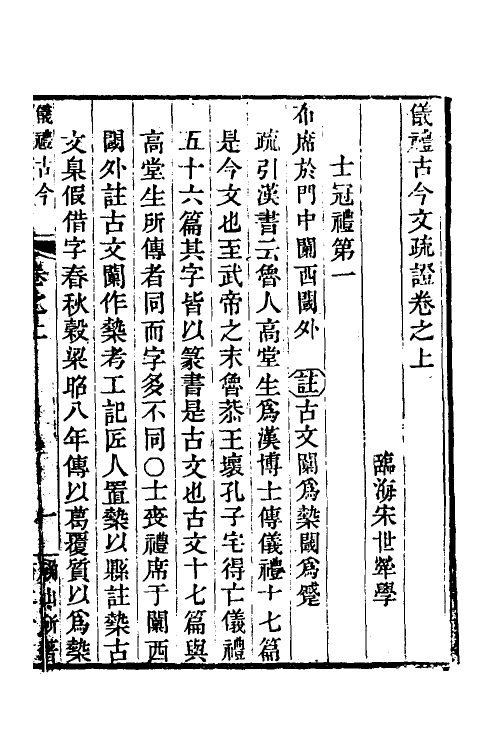 儀禮古今文疏證卷之上
臨海宋世犖學
士冠禮第一
布席於門中闑西閾外 註古文闑爲槷閾爲蹙
疏引漢書云魯人高堂生爲漢博士傳儀禮十七篇
是今文也至武帝之末魯恭王壞孔子宅得亡儀禮
五十六篇其字皆以篆書是古文也古文十七篇與
高堂生所傳者同而字多不同〇士喪禮席于闑西
閾外註古文闑作槷考工記匠人置槷以縣註槷古
文臬假借字春秋榖梁昭八年傳以葛覆質以爲槷
儀禮古今 卷之上 一